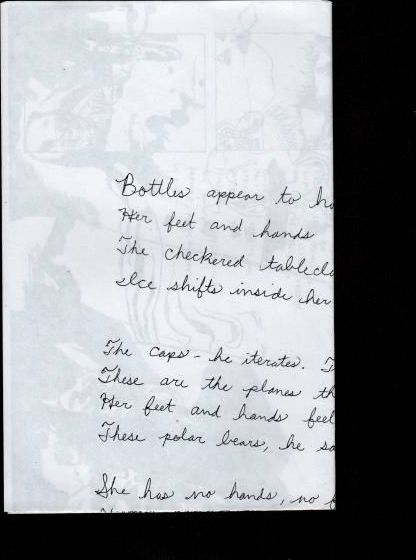 Bottles appear to ho
Her feet and hands
The checkered tableclo
Ice shifts inside her
The caps - he iterates. T
These are the planes th
Her feet and hands feel
These polar bears, he sa
She has no hands, no f